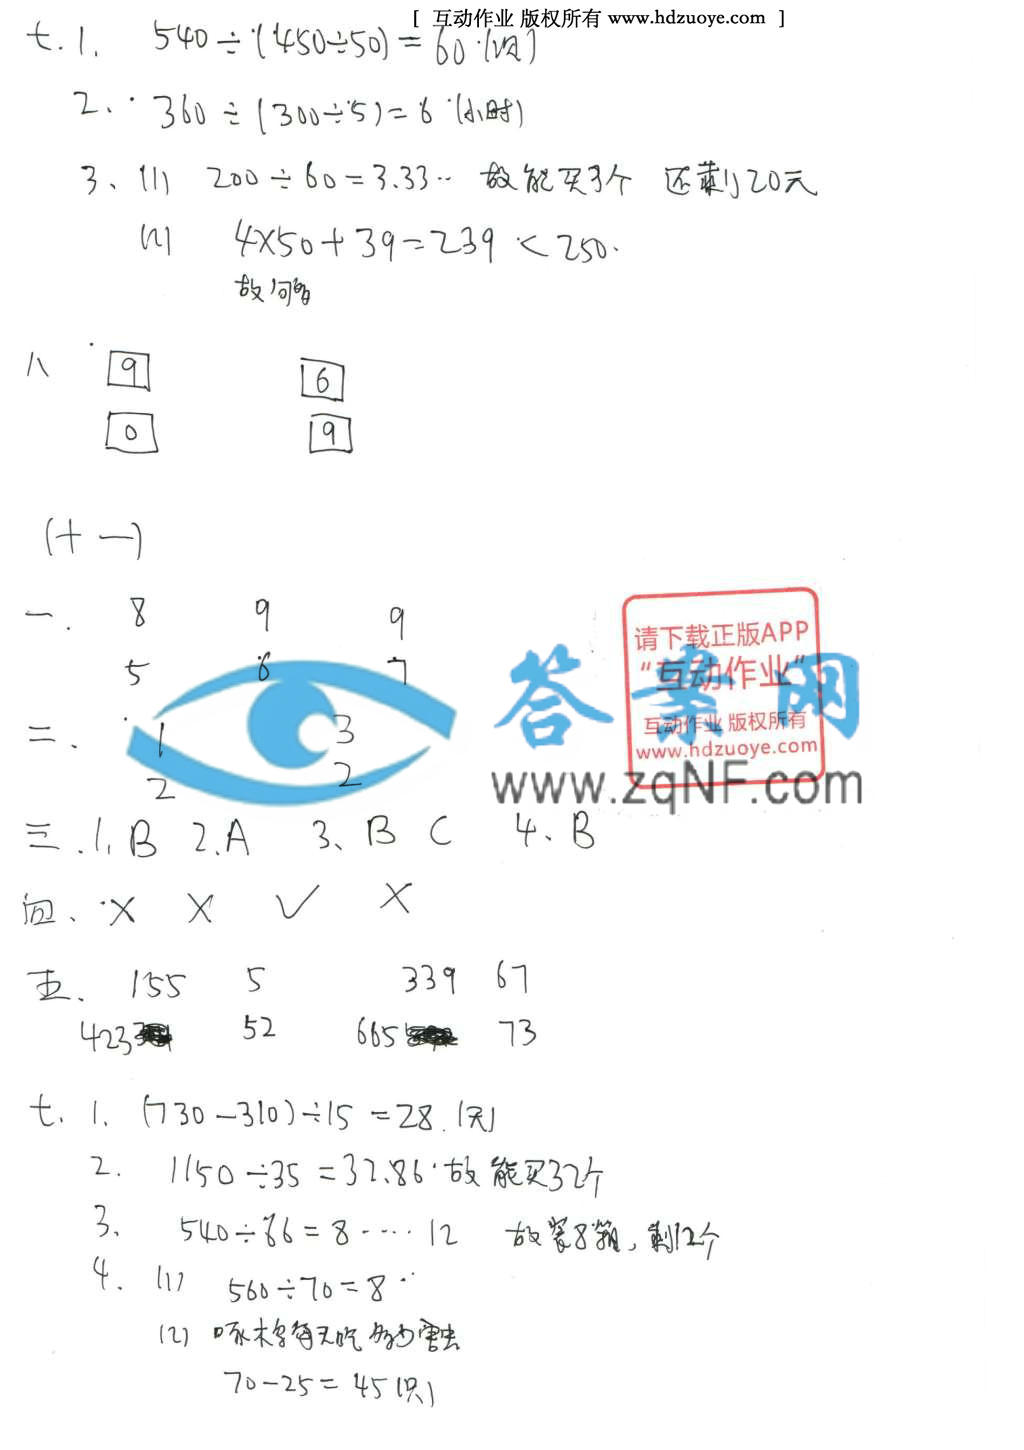 [ 互动作业 版权所有 www.hdzuoye.com ]
七.1. 540÷(450÷50)=60(次)
2. 360÷(300÷5)=6(小时)
3、(1) 200÷60=3.33·· 故能买3个 还剩20元
(2) 4×50+39=239<250.
故够
八 9 6
0 9
(十一)
一. 8 9 9
5 6 7
二、 1 3
2 2
三.1.B 2.A 3、B C 4、B
四、× × ✓ ×
五. 155 5 339 67
423 52 665 73
七.1.(730-310)÷15=28.(天)
2. 1150÷35=32.86 故能买32个
3. 540÷66=8····12 故装8箱,剩12个
4.(1) 560÷70=8
(2) 啄木鸟每天吃多少害虫
70-25=45(只)
请下载正版APP
“互动作业”
互动作业 版权所有
www.hdzuoye.com
答案网
www.zqNF.com